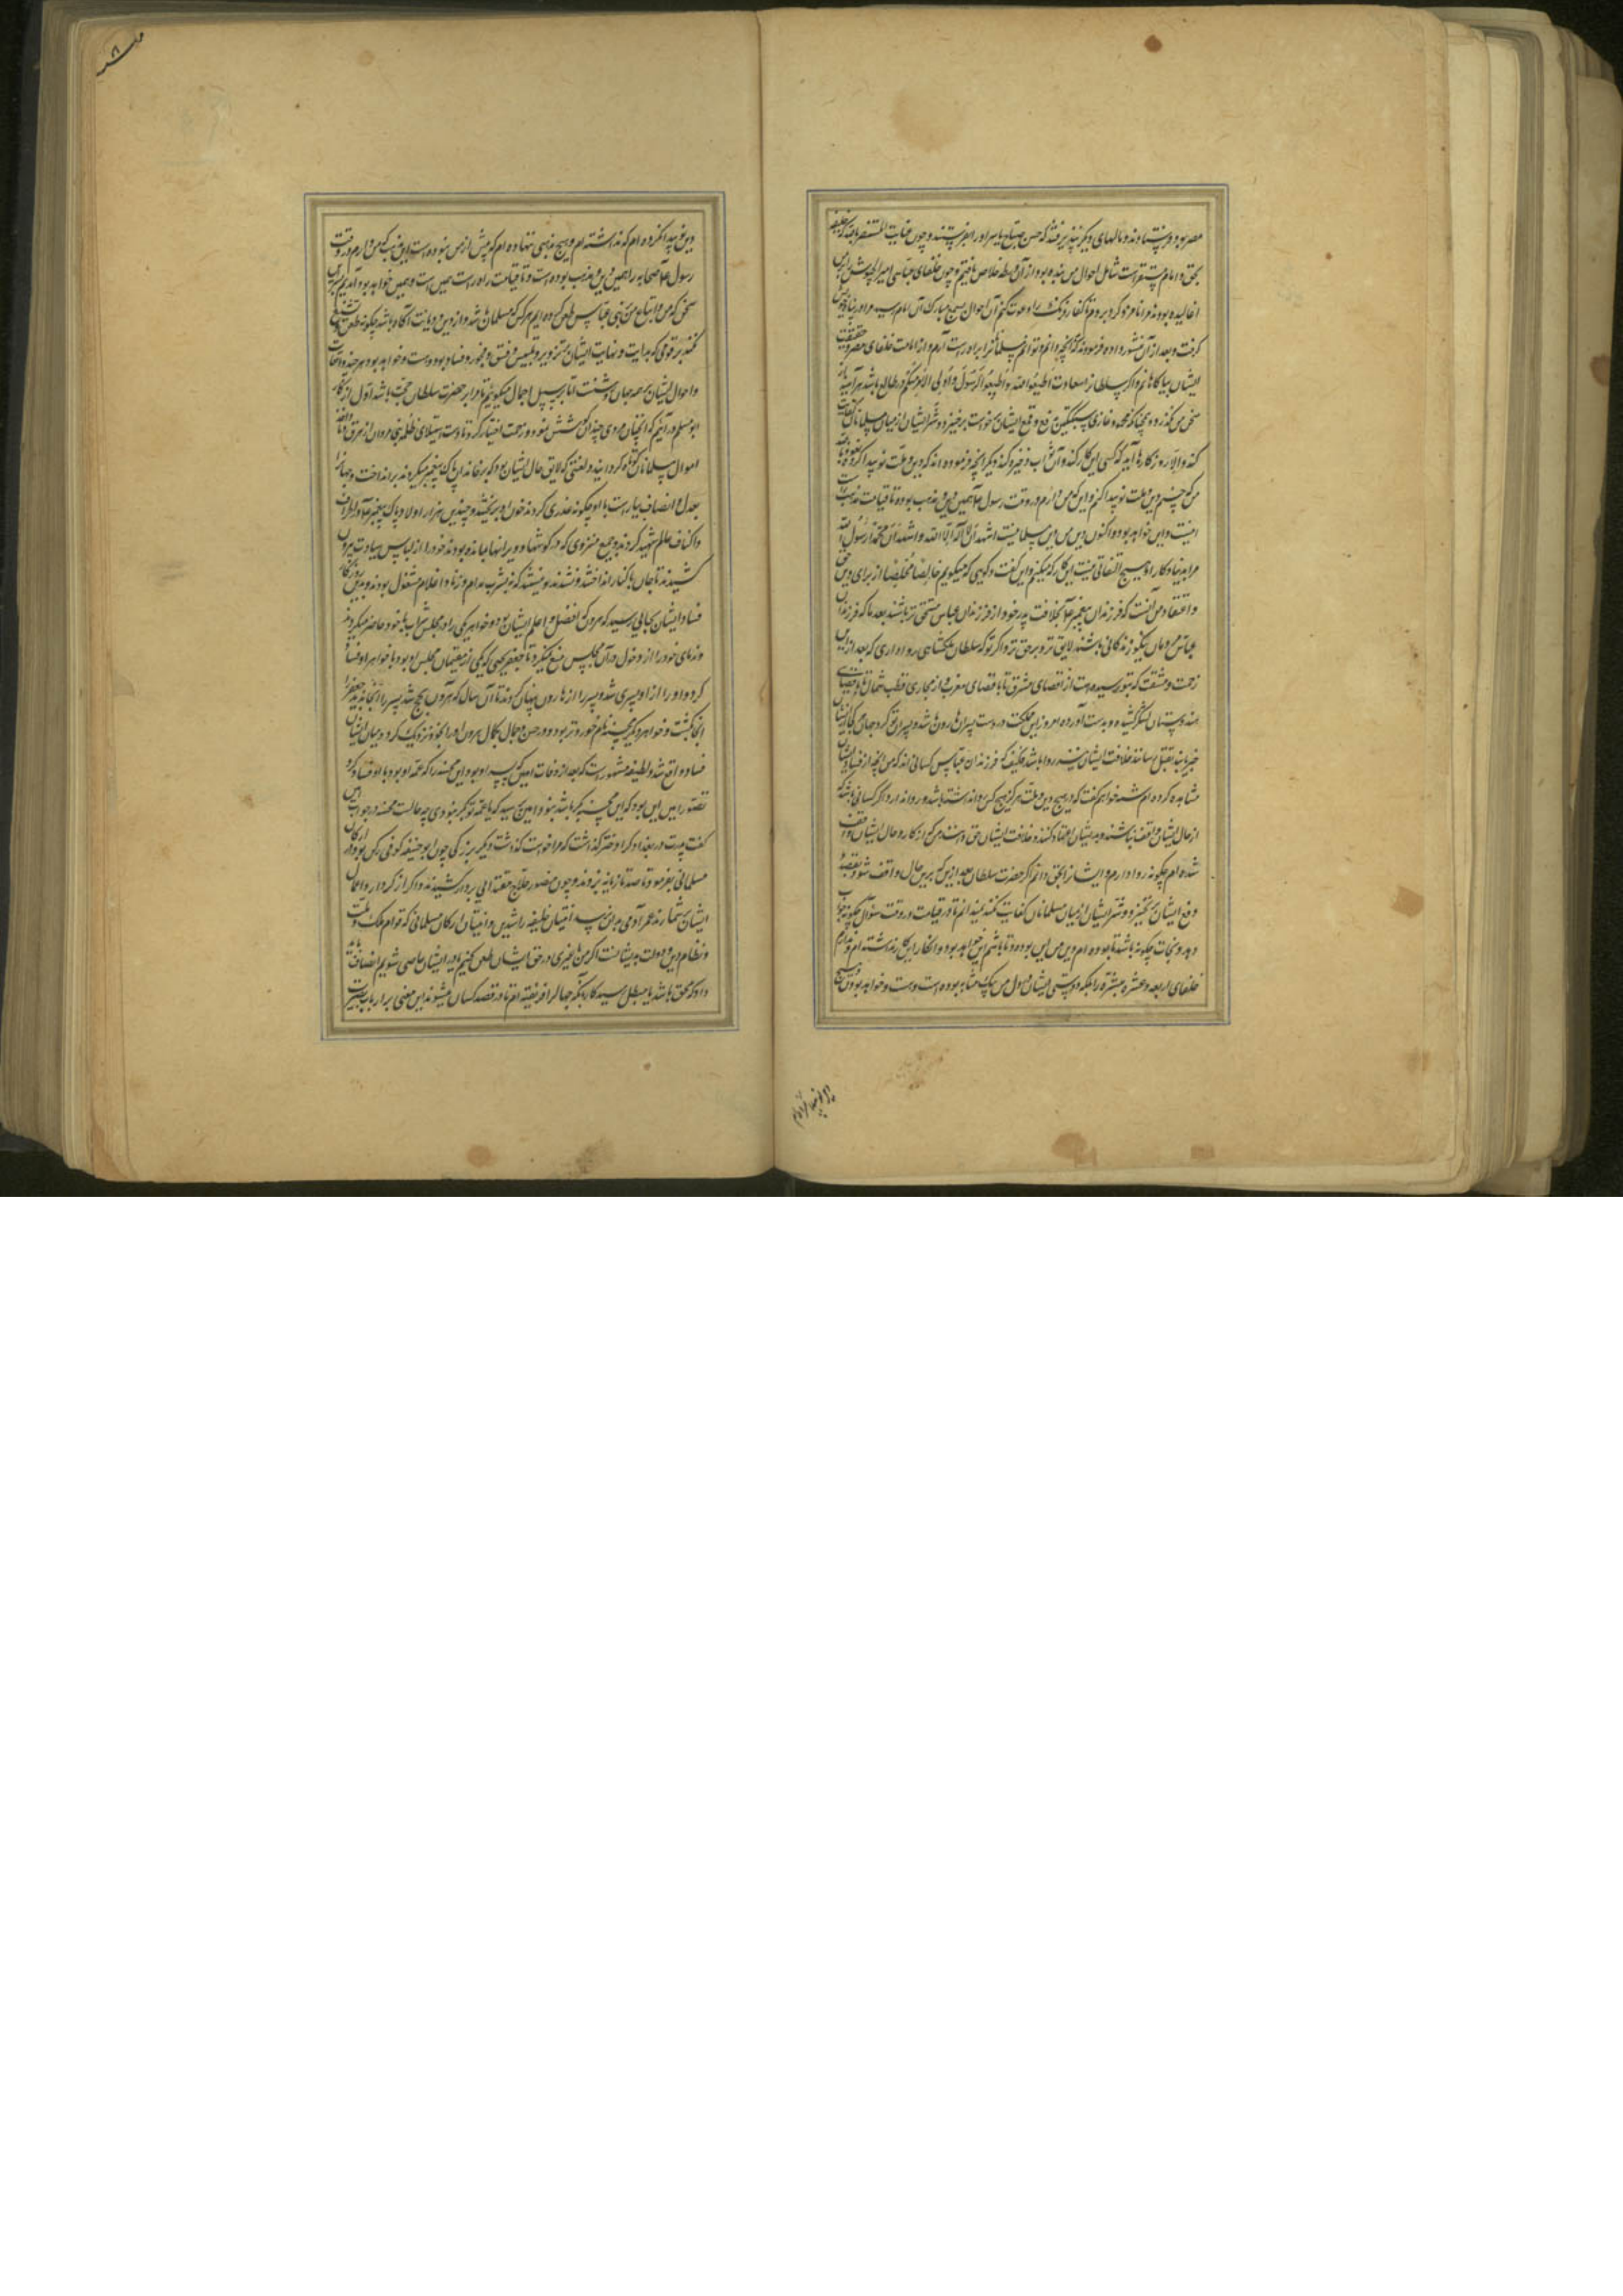 مصر بود و فرستادند و مالهای دیگر پذیرفتند که حسن صباح یا سر او را بفرستند و چون عنایت المستنصر بالله که خلیفه
بحق و امام مستقر است شامل احوال من بنده بود از آن ورطه خلاص یافتم و چون خلفای عباسی امیر الجیوش را برین
اغالیده بودند مرا نامزد کرد بروم تا کفار فرنک را دعوت کنم آن احوال بسمع مبارک آن امام رسید مرا در پناه خویش
گرفت و بعد از آن منشور داد و فرمود که آنچه دانم و توانم مسلمانانرا براه راست آرم و از امامت خلفای مصر و حقیقت
ایشان بیاگاهانم و اگر سلطانرا سعادت اطیعوا الله و اطیعوا الرسول و اولی الامر منکم در طالع باشد هر آینه از
سخن من نگذرد و همچنانکه محمود غازی سبکتکین بدفع و قمع ایشان برخاست برخیزد و شر ایشان از میان مسلمانان کفایت
کند و الا روزگاری آید که کسی این کار کند و آن ثواب ذخیره کند دیگر آنچه فرموده اند که دین و ملت نو پیدا کرده نعوذ بالله
من که حسنم دین و ملت نو پیدا کنم و این که من دارم در وقت رسول عم همین دین و مذهب بوده تا قیامت مذهب راست
اینست و این خواهد بود و اکنون دین من دین مسلمانیست اشهد ان لا اله الا الله و اشهد ان محمدا رسول الله
مرا بدنیا و کار او هیچ التفاتی نیست این کار که میکنم و این گفت و گویی که میگویم خالصا مخلصا از برای دین حق
و اعتقاد من آنست که فرزندان پیغمبر عم بخلافت پدر خود از فرزندان عباس مستحق تر باشند بعد ما که فرزندان
عباس مردمان نیکو زندگانی باشند لایق تر و بر حق تر و اگر تو که سلطان ملکشاهی روا داری که بعد از این
زحمت و مشقت که بتو رسیده است از اقصای مشرق تا باقصای مغرب و از مجاری قطب شمال تا باقصای
هندوستان لشکر کشیده و بدست آورده امروز این مملکت در دست پسران هارون باشد و پسران تو گرد جهان هر کجا از ایشان
خبر یابند بقتل رسانند خلافت ایشان نیز روا باشد فکیف که فرزندان عباس کسانی اند که من آنچه از فساد ایشان
مشاهده کرده ام شمه خواهم گفت که در هیچ دین و ملت هرگز هیچ کس روا نداشته باشد و روا ندارد اگر کسانی باشد که
از حال ایشان واقف نباشند و بدیشان اعتقاد کنند و خلافت ایشان حق دانند من که از کار و حال ایشان واقف
شده ام چگونه روا دارم و ایشانرا بحق دانم اگر حضرت سلطان بعد ازین که برین حال واقف شود بقصد
دفع ایشان برنخیزد و شر ایشان از میان مسلمانان کفایت نکند نمیدانم تا در قیامت در وقت سؤال چگونه جواب
دهد و نجات چگونه باشد تا بوده ام دین من این بوده و تا باشم این خواهد بود و انکار این کار نداشته ام و ندارم
خلفای اربعه و عشره مبشره را بلکه دوستی ایشان در دل من چنان که مشابه بوده است و هست و خواهد بود و هیچ
دینی نو پیدا نکرده ام که نداشته ام و هیچ مذهبی ننهاده ام که پیش از من نبوده است این مذهب که من دارم در وقت
رسول عم صحابه را همین دین و مذهب بوده است و تا قیامت راه راست همین است و همین خواهد بود آمدیم بر این
سخن که من و اتباع من بنی عباس طعن کرده ایم هر کس که مسلمان باشد و از دین و دیانت آگاه باشد چگونه طعن و تشنیع
نکند بر قومی که بدایت و نهایت ایشان بر تزویر و تلبیس و فسق و فجور و فساد بوده است و خواهد بود هر چند واقعات
و احوال ایشان بر همه جهان روشنست اما بر سبیل اجمال میگویم تا مرا بر حضرت سلطان حجت باشد اول از کار
ابو مسلم در آئیم که آنچنان مردی چندان کوشش نمود و زحمت اختیار کرد تا دست استیلای ظلمه بنی مروان از خرق و
اموال مسلمانان کوتاه گردانید و لعنتی که لایق حال ایشان بود که بر خاندان پاک پیغمبر میکردند برانداخت و جهانرا
بعدل و انصاف بیاراست با او چگونه غدری کردند خون او بریختند و چندین هزار اولاد پاک پیغمبر عم در اطراف
و اکناف عالم شهید کردند و جمع منزوی که در گوشها و ویرانها بماندند بودند خود را از لباس سیادت بیرون
کشیدند تا جان باکنار انداختند و نشدند بو نیستند که به شرب مدام و زنا و اغلام مشغول بودند و بدین روزگار
فساد ایشان بجایی رسید که هرون که افضل و اعلم ایشان بود دو خواهر یکی را در مجلس شراب با خود حاضر میکرد
ندمای خود را از دخول در آن مجلس منع نمیکرد تا جعفر یحیی که یکی از مقیمان مجلس او بود با خواهر او فساد
کرد و او را از او پسری شد و پسر را از هارون پنهان کردند تا آن سال که هرون بحج شد پسر را آنجا بدید جعفر را
آنجا بکشت و خواهر دیگر محسنه نام خوردتر بود و در حسن و جمال بکمال هرون او را بخود نزدیک کرد و میان ایشان
فساد واقع شد و لطیفه مشهور است که بعد از وفات امین که پسر او بود این محسنه را که عمه او بود با او فساد کرد
تصور امین این بود که این محسنه بکر باشد نبود امین پرسید که یا عمه تو بکر نبودی چه حالست محسنه در جواب امین
گفت پدرت در بغداد کرا دختر گذاشت که مرا خواست گذاشت دیگر بزرگی چون بو حنیفه کوفی رکن بود از ارکان
مسلمانی بفرمود تا صد تازیانه بزدند و چون منصور حلاج مقتدایی بر دار کشیدند و اگر از کردار و اعمال
ایشان بر شمارند عمر آدمی بدان نرسد اینان خلیفه راشدین و اینان ارکان مسلمانی که قوام ملک و ملت
و نظام دین و دولت بدیشانست اگر من یا غیری در حق ایشان طعن کنیم یا در ایشان عاصی شویم انصاف باید
داد که محق باشد یا مبطل رسید کار بدانکه جهال را فریفته ام تا در قصد کسان میشوند این معنی بر ارباب بصیرت